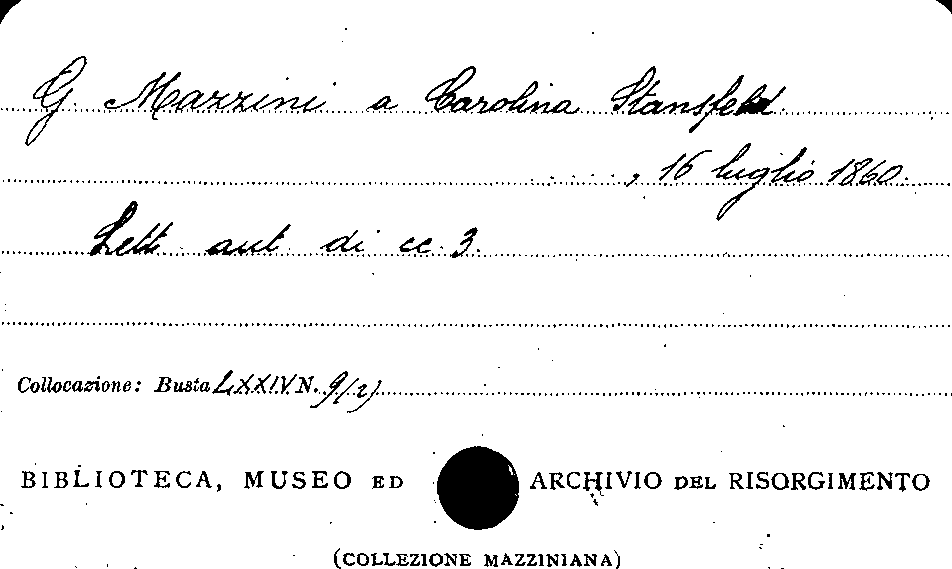 G. Mazzini a Carolina Stansfeld.
....., 16 luglio 1860.
Lett. aut. di cc. 3.
Collocazione: Busta LXXIV N. 9/(2)
BIBLIOTECA, MUSEO ED ARCHIVIO DEL RISORGIMENTO
(COLLEZIONE MAZZINIANA)